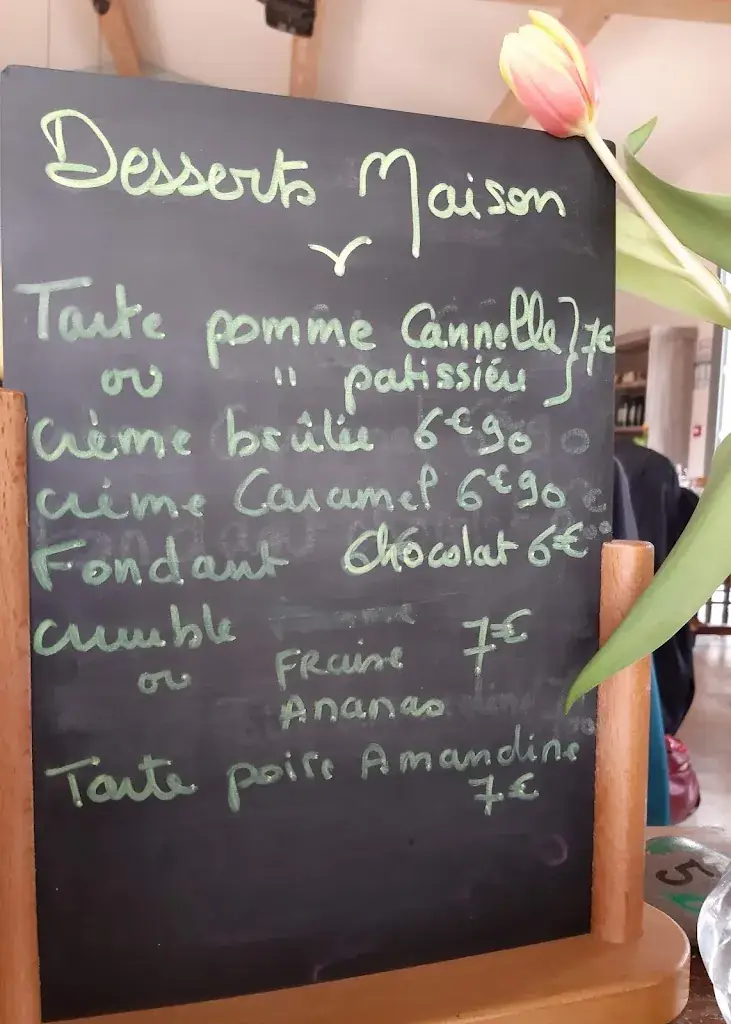 Desserts Maison
Tarte pomme Cannelle } 7€
ou " patissière
crème brûlée 6€90
crème Caramel 6€90
Fondant Chocolat 6€
crumble 7€
ou Fraise
Ananas
Tarte poire Amandine
7€
5